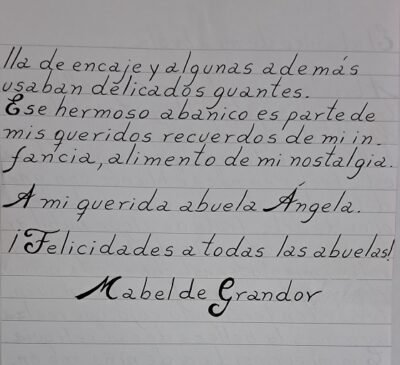 lla de encaje y algunas además
usaban delicados guantes.
Ese hermoso abanico es parte de
mis queridos recuerdos de mi in.
fancia, alimento de mi nostalgia.
A mi querida abuela Ángela.
¡Felicidades a todas las abuelas!
Mabel de Grandov